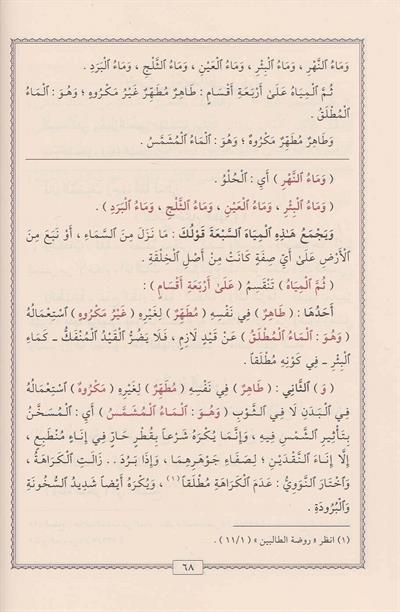 وَمَاءُ ٱلنَّهْرِ ، وَمَاءُ ٱلْبِئْرِ ، وَمَاءُ ٱلْعَيْنِ ، وَمَاءُ ٱلثَّلْجِ ، وَمَاءُ ٱلْبَرَدِ .
ثُمَّ ٱلْمِيَاهُ عَلَىٰ أَرْبَعَةِ أَقْسَامٍ : طَاهِرٌ مُطَهِّرٌ غَيْرُ مَكْرُوهٍ ؛ وَهُوَ : ٱلْمَاءُ
ٱلْمُطْلَقُ .
وَطَاهِرٌ مُطَهِّرٌ مَكْرُوهٌ ؛ وَهُوَ : ٱلْمَاءُ ٱلْمُشَمَّسُ .
( وَمَاءُ ٱلنَّهْرِ ) أَيِ : ٱلْحُلْوُ .
( وَمَاءُ ٱلْبِئْرِ ، وَمَاءُ ٱلْعَيْنِ ، وَمَاءُ ٱلثَّلْجِ ، وَمَاءُ ٱلْبَرَدِ ) .
وَيَجْمَعُ هَـٰذِهِ ٱلْمِيَاهَ ٱلسَّبْعَةَ قَوْلُكَ : مَا نَزَلَ مِنَ ٱلسَّمَاءِ ، أَوْ نَبَعَ مِنَ
ٱلْأَرْضِ عَلَىٰ أَيِّ صِفَةٍ كَانَتْ مِنْ أَصْلِ ٱلْخِلْقَةِ .
( ثُمَّ ٱلْمِيَاهُ ) تَنْقَسِمُ ( عَلَىٰ أَرْبَعَةِ أَقْسَامٍ ) :
أَحَدُهَا : ( طَاهِرٌ ) فِي نَفْسِهِ ( مُطَهِّرٌ ) لِغَيْرِهِ ( غَيْرُ مَكْرُوهٍ ) ٱسْتِعْمَالُهُ
( وَهُوَ : ٱلْمَاءُ ٱلْمُطْلَقُ ) عَنْ قَيْدٍ لَازِمٍ ، فَلَا يَضُرُّ ٱلْقَيْدُ ٱلْمُنْفَكُّ ـ كَمَاءِ
ٱلْبِئْرِ ـ فِي كَوْنِهِ مُطْلَقاً .
( وَ ) ٱلثَّانِي : ( طَاهِرٌ ) فِي نَفْسِهِ ( مُطَهِّرٌ ) لِغَيْرِهِ ( مَكْرُوهٌ ) ٱسْتِعْمَالُهُ
فِي ٱلْبَدَنِ لَا فِي ٱلثَّوْبِ ( وَهُوَ : ٱلْمَاءُ ٱلْمُشَمَّسُ ) أَيِ : ٱلْمُسَخَّنُ
بِتَأْثِيرِ ٱلشَّمْسِ فِيهِ ، وَإِنَّمَا يُكْرَهُ شَرْعاً بِقُطْرٍ حَارٍّ فِي إِنَاءٍ مُنْطَبِعٍ ،
إِلَّا إِنَاءَ ٱلنَّقْدَيْنِ ؛ لِصَفَاءِ جَوْهَرِهِمَا ، وَإِذَا بَرَدَ.. زَالَتِ ٱلْكَرَاهَةُ ،
وَٱخْتَارَ ٱلنَّوَوِيُّ : عَدَمَ ٱلْكَرَاهَةِ مُطْلَقاً(١) ، وَيُكْرَهُ أَيْضاً شَدِيدُ ٱلسُّخُونَةِ
وَٱلْبُرُودَةِ .
(١) انظر « روضة الطالبين » ( ١١/١ ) .
٦٨